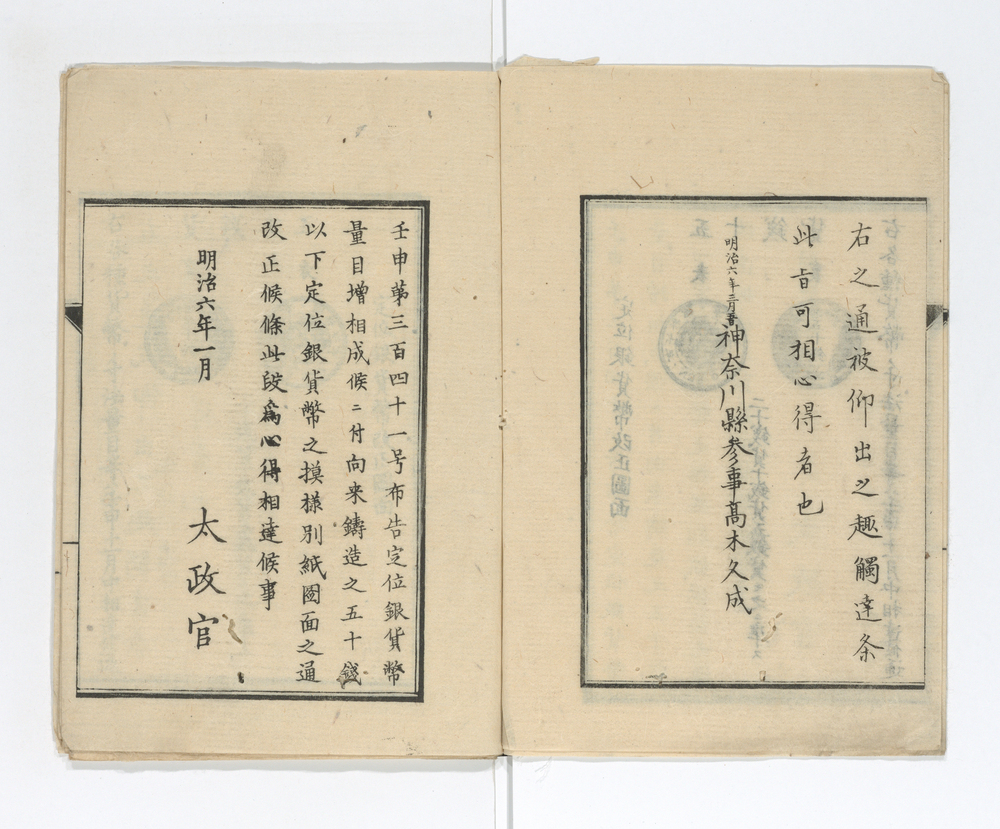 右之通被仰出之趣觸達条
此旨可相心得者也
明治六年三月 神奈川縣参事髙木久成
壬申苐三百四十一号布告定位銀貨幣
量目增相成候ニ付向来鑄造之五十錢
以下定位銀貨幣之摸様別紙圖面之通
改正候條此段爲心得相達候事
明治六年一月
太政官